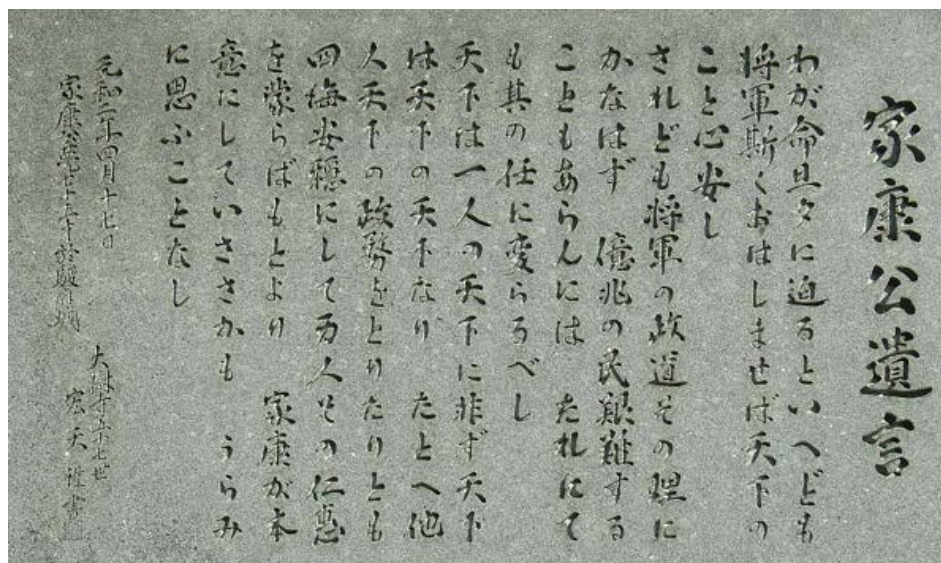 家康公遺言
わが命旦夕に迫るといへども
将軍斯くおはしませば天下の
こと心安し
されども将軍の政道その理に
かなはず 億兆の民艱難する
こともあらんには たれにて
も其の任に変らるべし
天下は一人の天下に非ず天下
は天下の天下なり たとへ他
人天下の政務をとりたりとも
四海安穏にして万人その仁恵
を蒙らばもとより 家康が本
意にしていささかも うらみ
に思ふことなし
元和二年四月十七日
家康公薨七十五才於駿府城
大樹寺五十七世
宏天 謹書